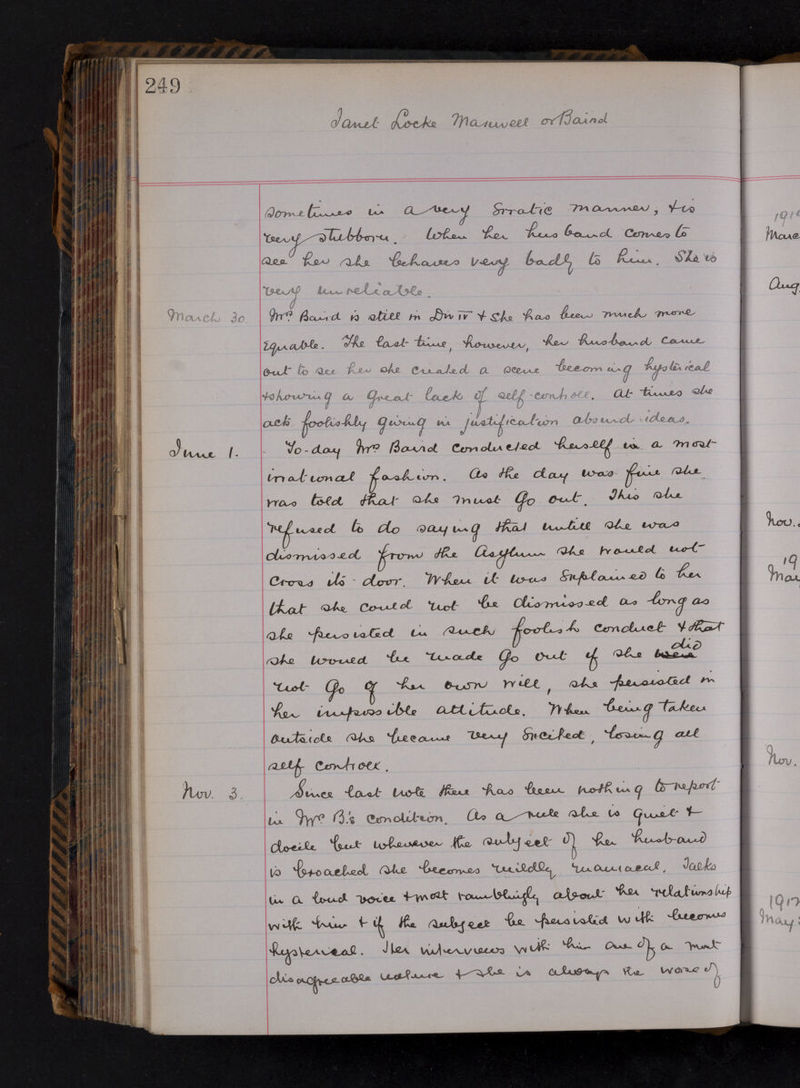 249
Janet Locke Maxwell or Baird
sometimes in a very Erratic manner, & is
very stubborn. When her husband comes to
see her she behaves very badly to him. She is
very unreliable.
March 30 Mrs Baird is still in Div IV & She has been much more
Equable. The last time, however, her husband came
out to see her she created a scene becoming hysterical
& showing a great lack of self-controll. At times she
acts foolishly giving in justification absurd ideas.
June 1. To-day Mrs Baird conducted herself in a most
irrational fashion. As the day was fine she
was told that she must go out. This she
refused to do saying that untill she was
dismissed from the Asylum she would not
Cross its door. When it was Explained to her
that she could not be dismissed as long as
she persisted in such foolish conduct & that
she would be made Go out if she did
not Go of her own will, she persisted in
her impossible attitude. When being taken
outside she became very Excited, losing all
self controll.
Nov. 3. Since last note there has been nothing to report
in Mrs B's condition. As a rule she is Quiet &
docile but whenever the subject of her husband
is broached she becomes wildly maniacal. Talks
in a loud voice & most ramblingly about her relationship
with him & if the subject be persisted with becomes
hysterical. Her interviews with him are of a most
disagreeable nature & she is always the worse of
191
Aug
Nov.
19
Nov.
191
May